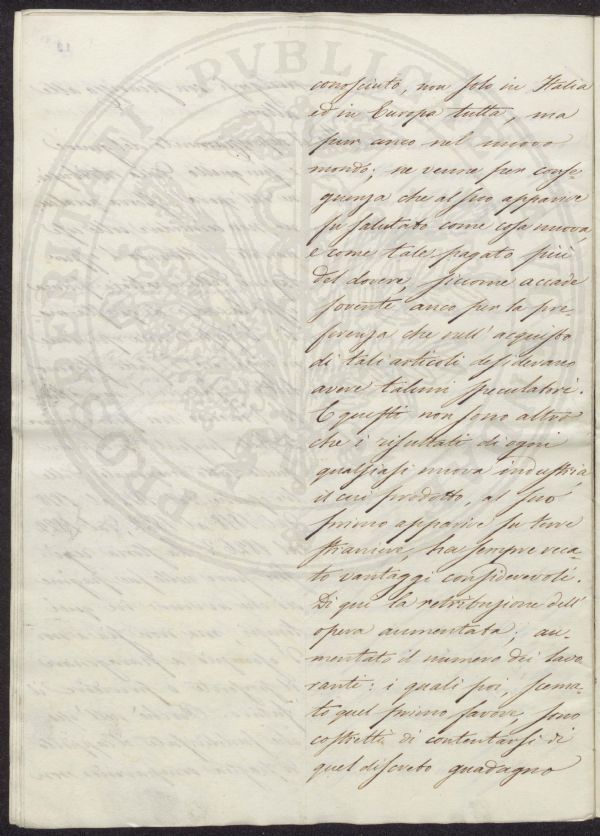 PROSPERITATI PVBLICAE
conosciuto, non solo in Italia
ed in Europa tutta, ma
pur anco nel nuovo
mondo; ne venne per conse-
guenza che al suo apparire
fu salutato come cosa nuova,
e come tale pagato più
del dovere, siccome accade
sovente, anco per la pre-
ferenza che nell'acquisto
di tali articoli desiderano
avere taluni speculatori.
E questi non sono altro
che i risultati di ogni
qualsiasi nuova industria,
il cui prodotto, al suo
primo apparire su terre
straniere, ha sempre reca-
to vantaggi considerevoli.
Di qui la retribuzione dell'
opera aumentata; au-
mentato il numero dei lavo-
ranti: i quali poi, scema-
to quel primo favore, sono
costretti di contentarsi di
quel discreto guadagno